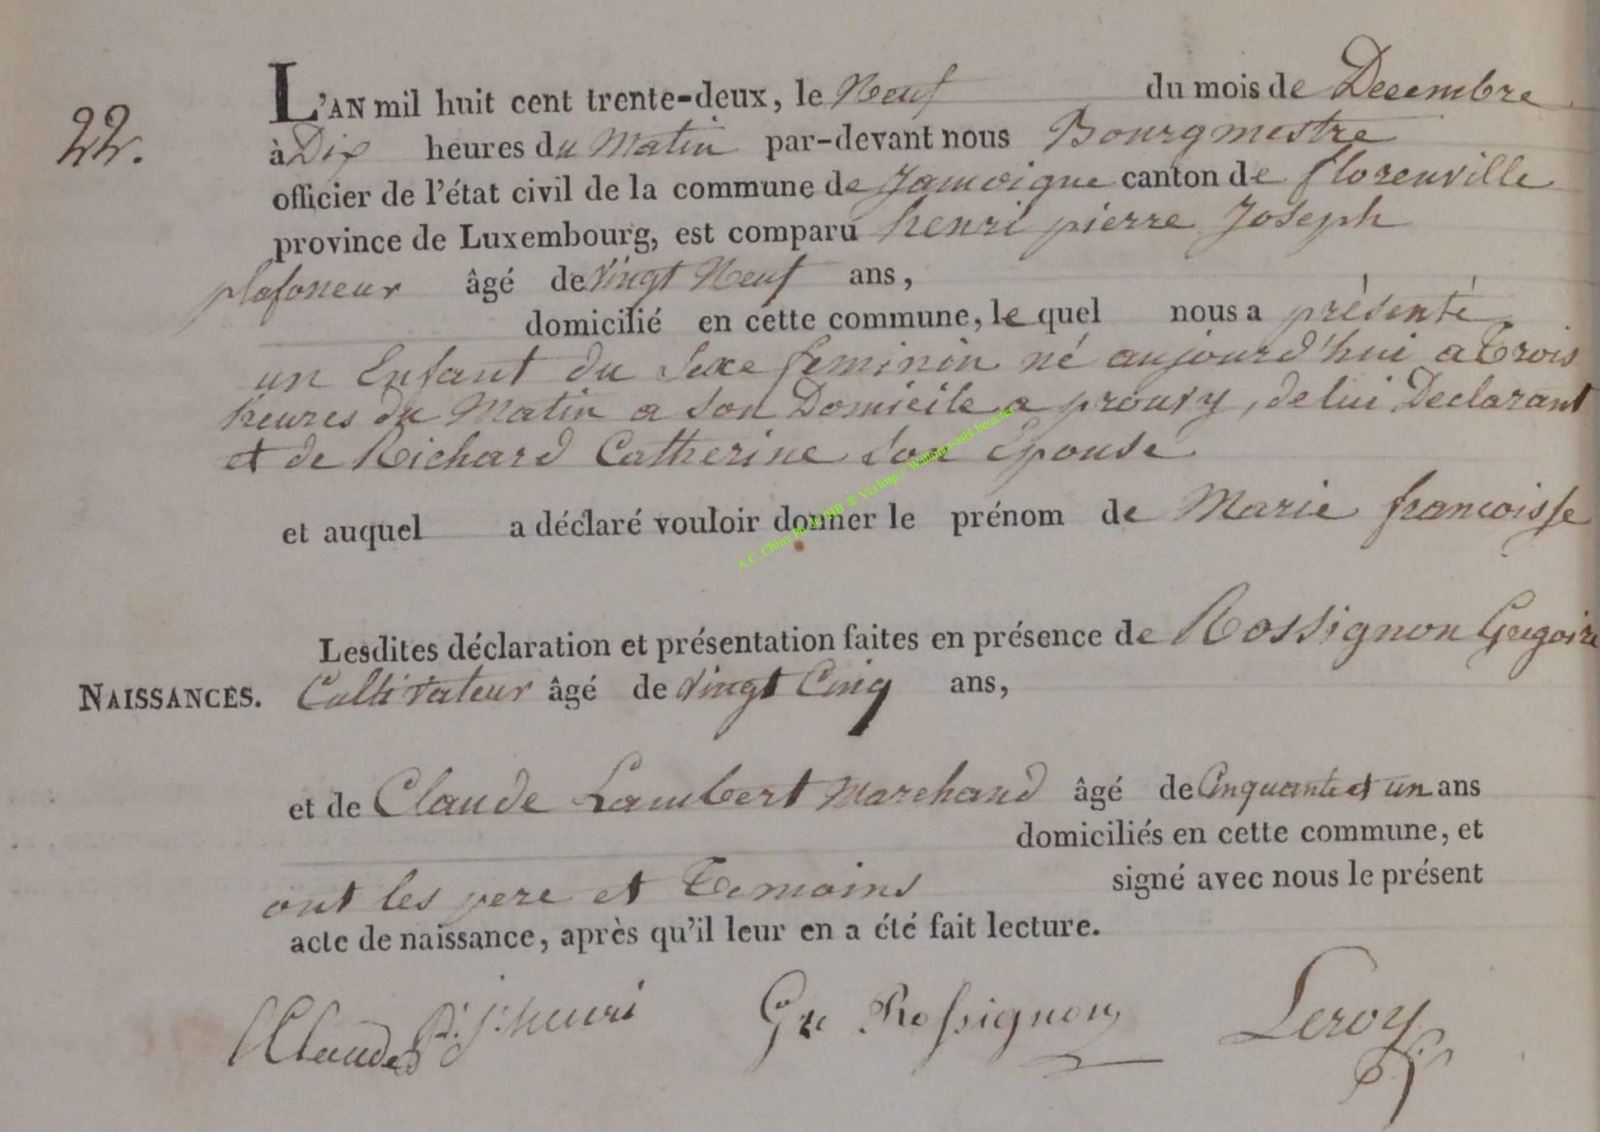 22.
L'AN mil huit cent trente-deux, le Neuf du mois de Decembre
à Dix heures du Matin par-devant nous Bourgmestre
officier de l'état civil de la commune de Jamoigne canton de florenville
province de Luxembourg, est comparu henri pierre Joseph
plafoneur âgé de vingt Neuf ans,
domicilié en cette commune, le quel nous a présenté
un Enfant du Sexe feminin né aujourd'hui a Trois
heures du Matin a son Domicile a prouvy, de lui Declarant
et de Richard Catherine Son Epouse
et auquel a déclaré vouloir donner le prénom de Marie francoisse
Lesdites déclaration et présentation faites en présence de Rossignon Gregoire
NAISSANCES. Cultivateur âgé de vingt Cinq ans,
et de Claude Lambert Marchand âgé de Cinquante et un ans
domiciliés en cette commune, et
ont les pere et Temoins signé avec nous le présent
acte de naissance, après qu'il leur en a été fait lecture.
Claude P. J. henri Gre Rossignon Leroy